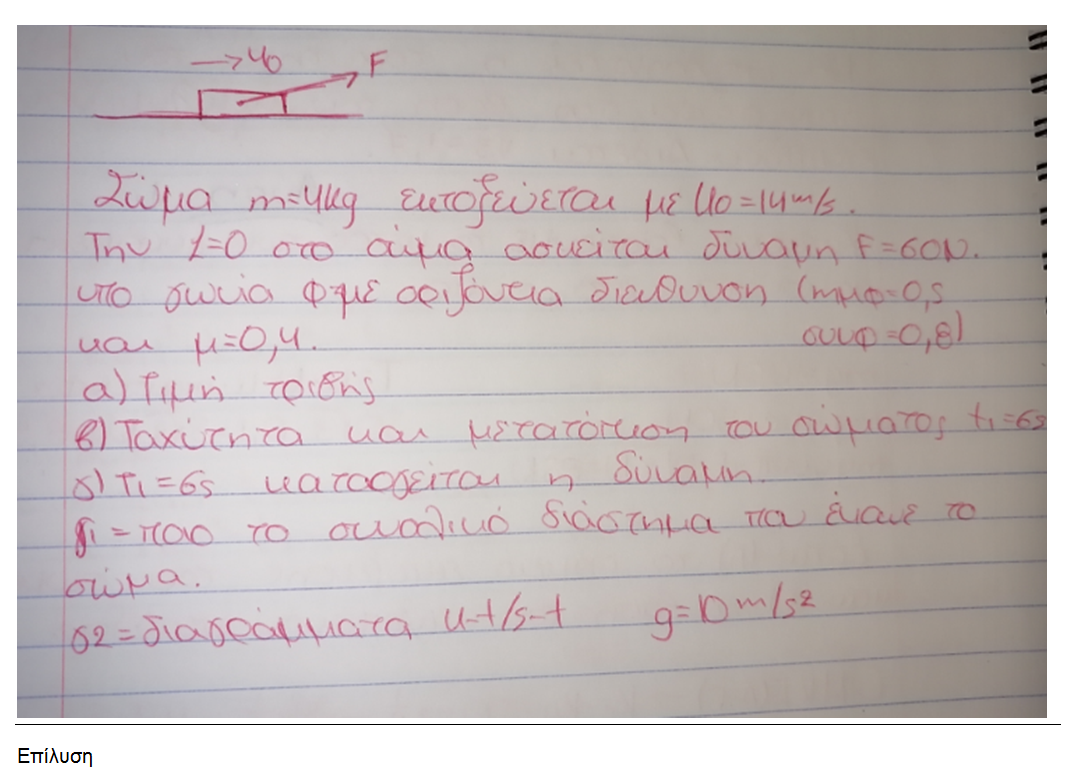 →υ0 F
Σώμα m=4kg εκτοξεύεται με υ0=14m/s.
Την t=0 στο σώμα ασκείται δύναμη F=60N.
υπο γωνία φ με οριζόντια διευθυνση (ημφ=0,5
και μ=0,4. συνφ=0,8)
α) Τιμή τριβής
β) Ταχύτητα και μετατόπιση του σώματος t1=6s
γ) t1=6s καταργείται η δύναμη.
γ1=ποιο το συνολικό διάστημα που έκανε το
σώμα.
γ2=διαγράμματα υ-t/s-t g=10m/s²
Επίλυση